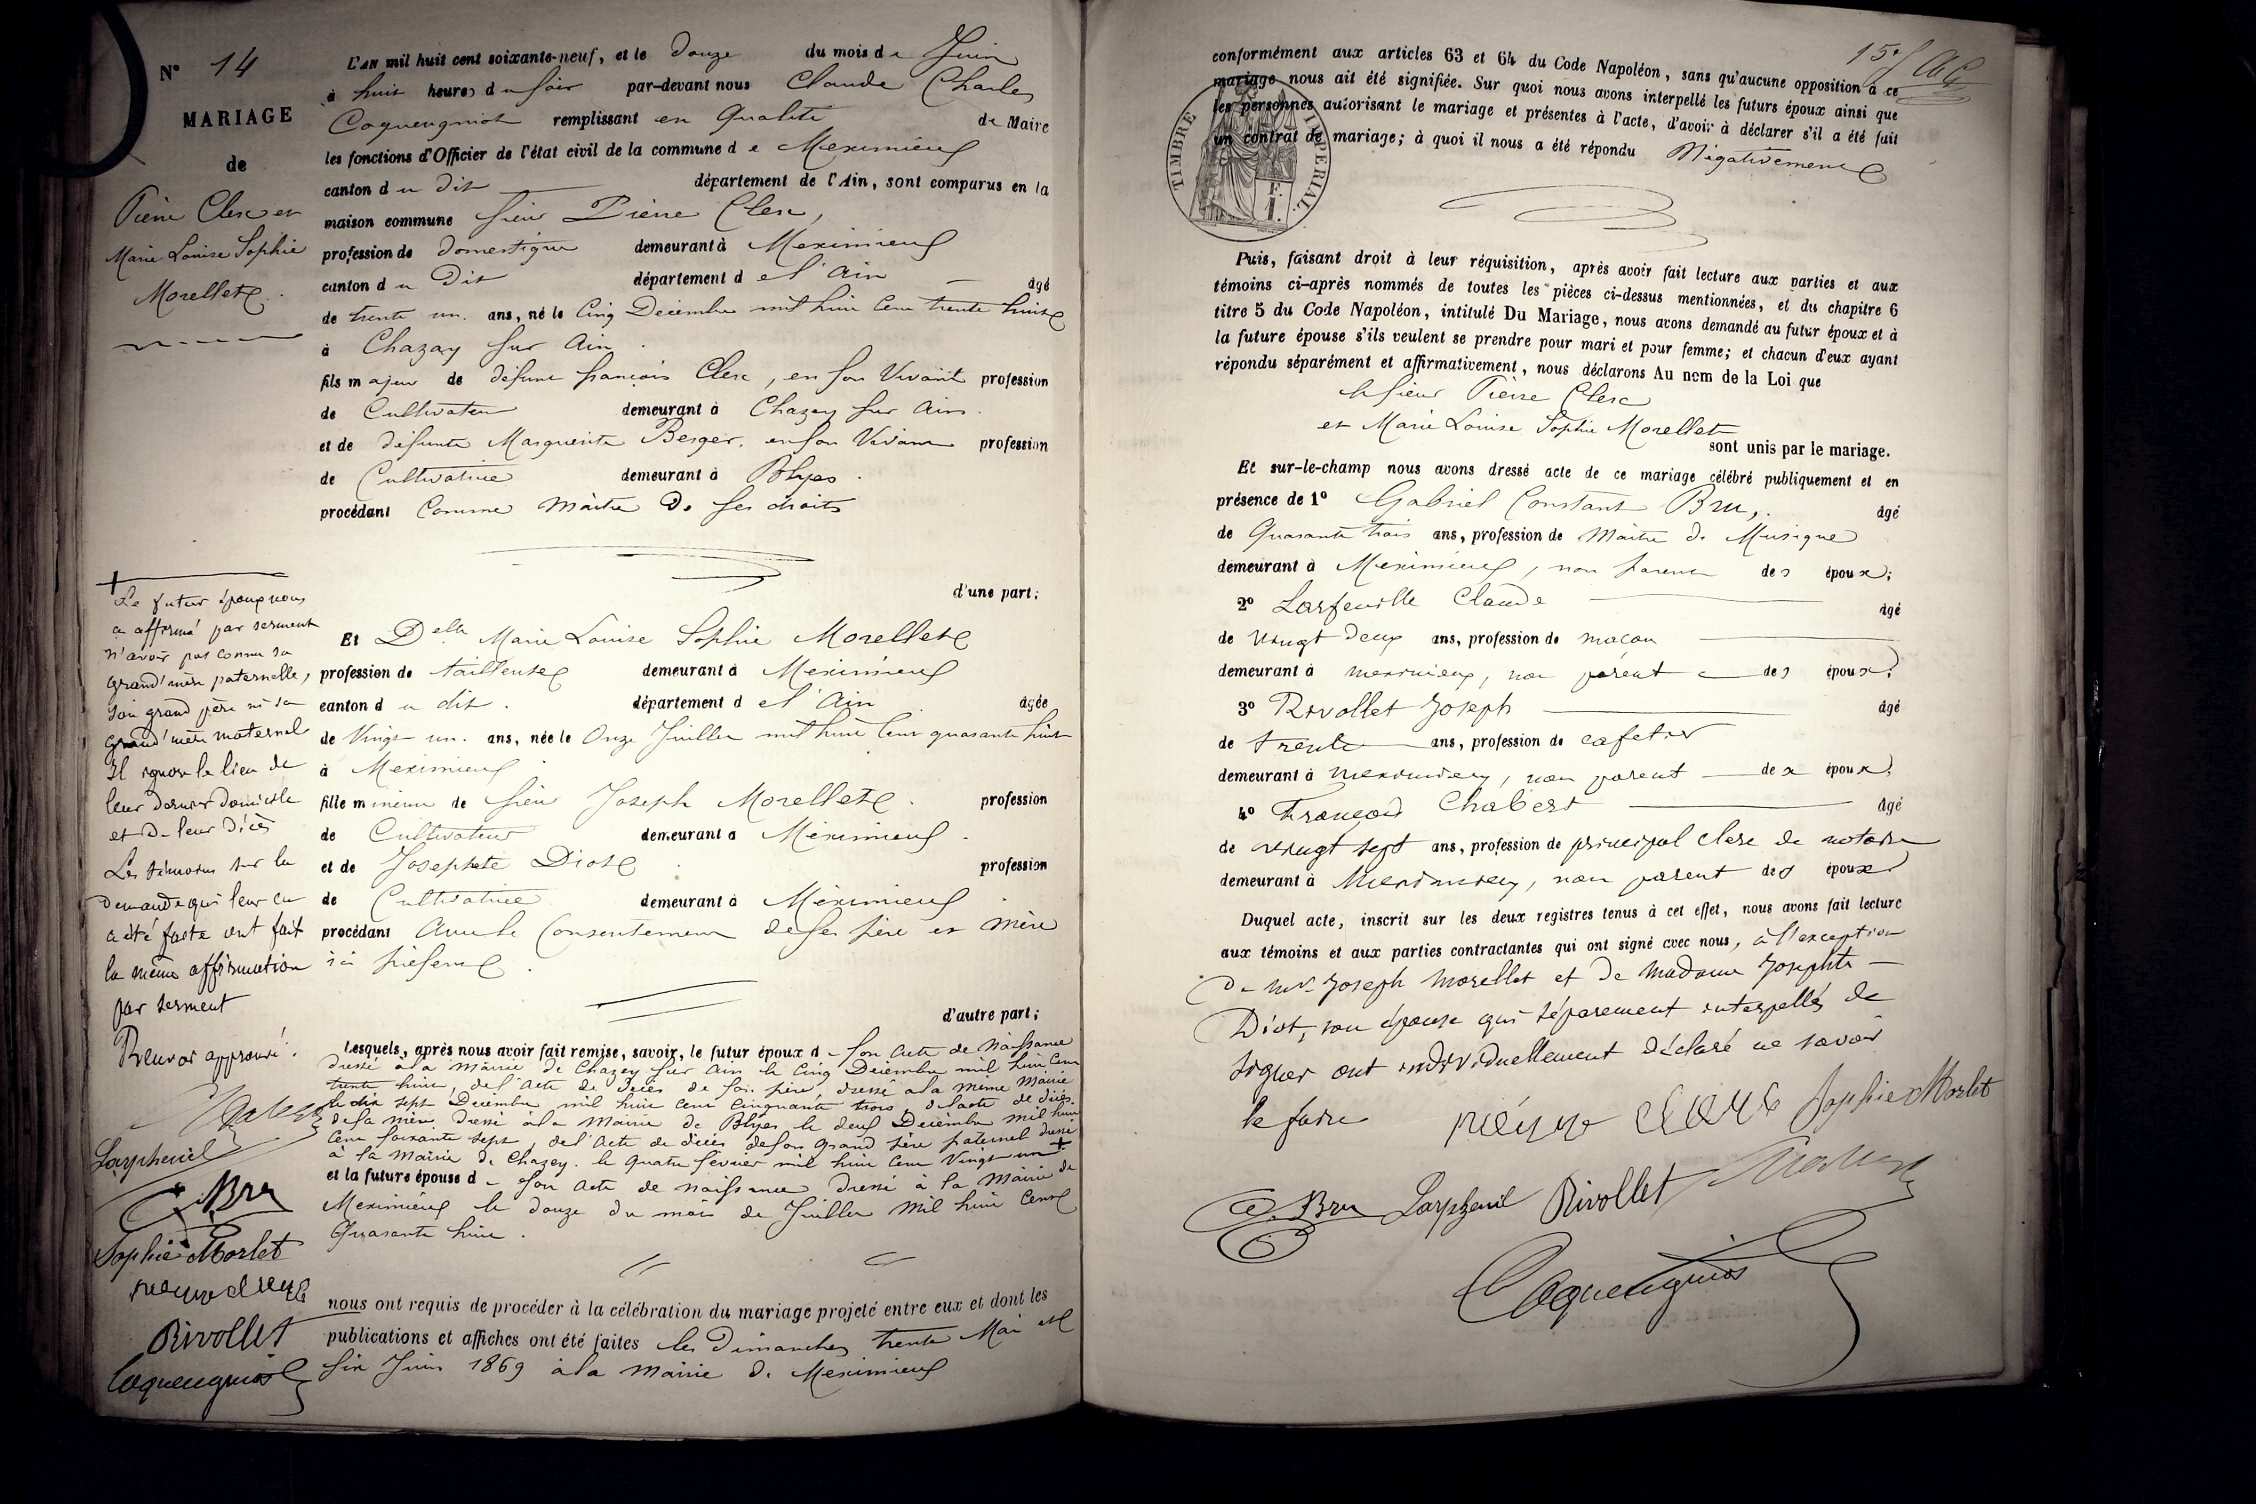 N° 14
MARIAGE
de
Pierre Clerc et
Marie Louise Sophie
Morellet
L'AN mil huit cent soixante-neuf, et le Douze du mois de Juin
à huit heures du soir par-devant nous Claude Charles
Coquengniot remplissant en Qualité de Maire
les fonctions d'Officier de l'état civil de la commune de Meximieux
canton du Dit département de l'Ain, sont comparus en la
maison commune sieur Pierre Clerc,
profession de domestique demeurant à Meximieux
canton du Dit département de l'Ain âgé
de trente un ans, né le Cinq Décembre mil huit Cent trente huit
à Chazay sur Ain.
fils majeur de défunt françois Clerc, en son Vivant profession
de Cultivateur demeurant à Chazey sur Ain.
et de défunte Marguerite Berger, en son Vivant profession
de Cultivatrice demeurant à Blyes.
procédant Comme Maître de ses droits
d'une part;
Et Delle Marie Louise Sophie Morellet
profession de tailleuse demeurant à Meximieux
canton du dit. département de l'Ain âgée
de Vingt un. ans, née le Onze Juillet mil huit Cent quarante huit
à Meximieux
fille mineure de sieur Joseph Morellet. profession
de Cultivateur demeurant à Méximieux.
et de Josephte Diot profession
de Cultivatrice demeurant à Méximieux
procédant Avec le Consentement de ses père et Mère
ici présents.
d'autre part;
Lesquels, après nous avoir fait remise, savoir, le futur époux d son Acte de Naissance
dressé à la Mairie de Chazey sur Ain le Cinq Décembre mil huit Cent
trente huit, de l'Acte de décès de son père, dressé à la même Mairie
le dix sept Décembre mil huit Cent Cinquante trois, de l'acte de décès
de sa mère Dressé à la Mairie de Blyes le deux Décembre Mil huit
Cent soixante sept, de l'Acte de décès de son Grand père paternel dressé
à la Mairie de Chazey. le quatre février mil huit Cent Vingt un +
et la future épouse d son Acte de naissance Dressé à la Mairie de
Meximieux le douze du mois de Juillet Mil huit Cent
Quarante huit.
nous ont requis de procéder à la célébration du mariage projeté entre eux et dont les
publications et affiches ont été faites les Dimanches trente Mai et
six Juin 1869 à la Mairie de Meximieux
+
Le futur époux nous
a affirmé par serment
n'avoir pas connu sa
grand'mère paternelle,
son grand père ni sa
grand'mère maternel
Il ignore le lieu de
leur dernier domicile
et de leur décès
Les témoins sur la
demande qui leur en
a été faite ont fait
la même affirmation
par serment
Renvoi approuvé.
Larpheuil
C. Bru
Sophie Morlet
Rivollet
Coquengniot
15e
conformément aux articles 63 et 64 du Code Napoléon, sans qu'aucune opposition à ce
mariage nous ait été signifiée. Sur quoi nous avons interpellé les futurs époux ainsi que
les personnes autorisant le mariage et présentes à l'acte, d'avoir à déclarer s'il a été fait
un contrat de mariage; à quoi il nous a été répondu Négativement
TIMBRE IMPERIAL.
Puis, faisant droit à leur réquisition, après avoir fait lecture aux parties et aux
témoins ci-après nommés de toutes les pièces ci-dessus mentionnées, et du chapitre 6
titre 5 du Code Napoléon, intitulé Du Mariage, nous avons demandé au futur époux et à
la future épouse s'ils veulent se prendre pour mari et pour femme; et chacun d'eux ayant
répondu séparément et affirmativement, nous déclarons Au nom de la Loi que
le sieur Pierre Clerc
et Marie Louise Sophie Morellet
sont unis par le mariage.
Et sur-le-champ nous avons dressé acte de ce mariage célébré publiquement et en
présence de 1° Gabriel Constant Bru, âgé
de Quarante trois ans, profession de Maître de Musique
demeurant à Méximieux, non parent des époux;
2° Larfeuille Claude âgé
de vingt deux ans, profession de maçon
demeurant à meximieux, non parent des époux;
3° Rivollet Joseph âgé
de trente ans, profession de cafetier
demeurant à meximieux, non parent des époux;
4° François Chabert âgé
de vingt sept ans, profession de principal clerc de notaire
demeurant à Meximieux, non parent des époux
Duquel acte, inscrit sur les deux registres tenus à cet effet, nous avons fait lecture
aux témoins et aux parties contractantes qui ont signé avec nous, à l'exception
de Mr Joseph Morellet et de Madame Josephte
Diot, son épouse qui séparement interpellés de
signer ont individuellement déclaré ne savoir
le faire
Sophie Morlet
C. Bru Larpheuil Rivollet
Coquengniot